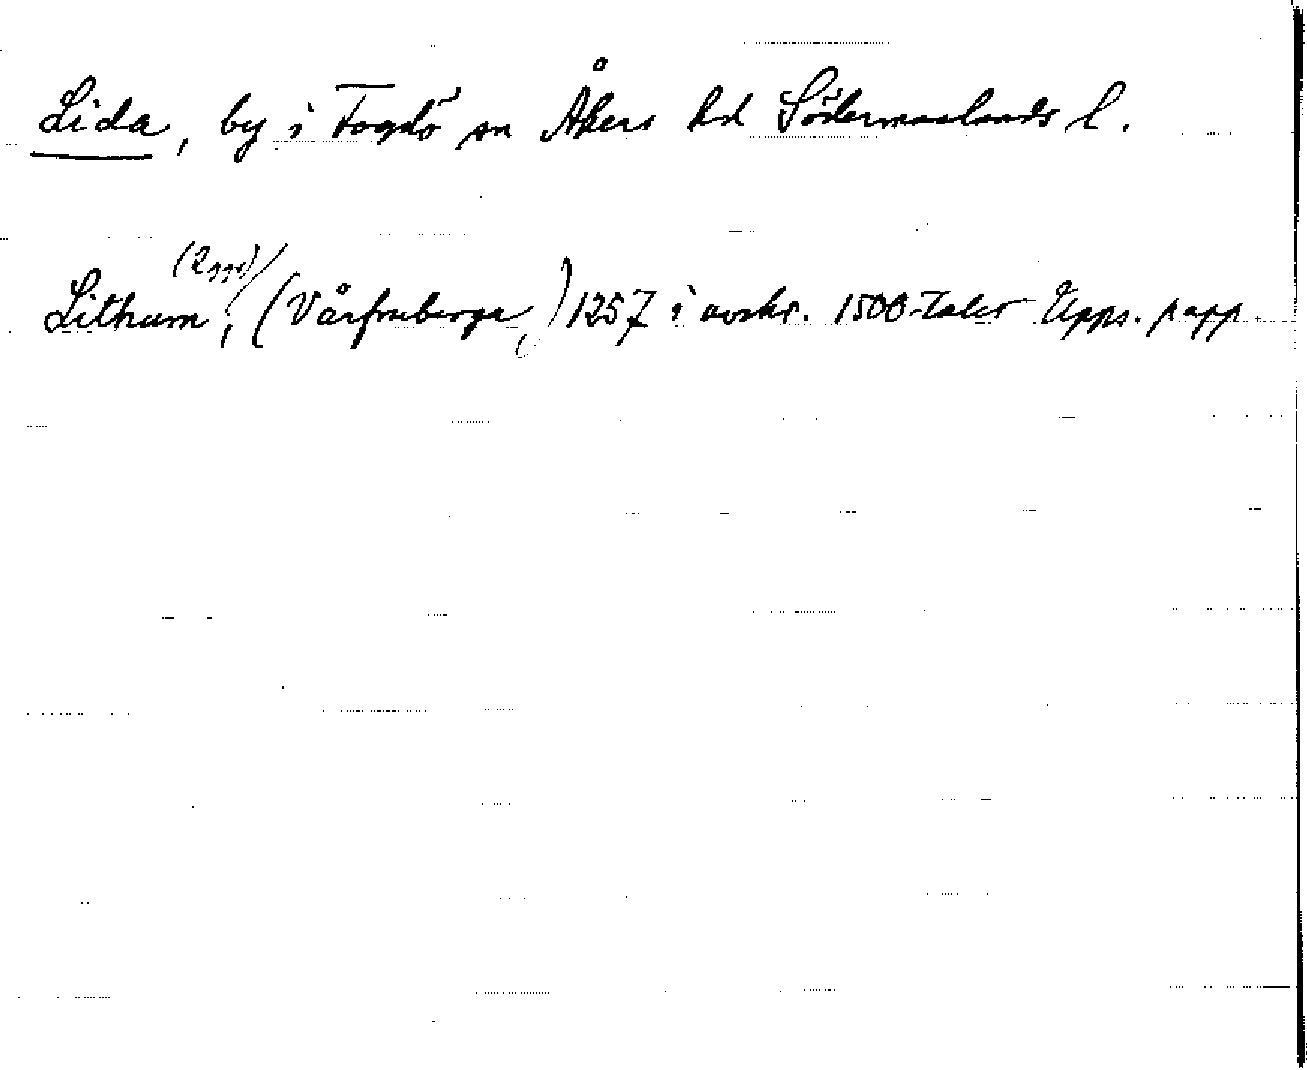 Lida, by i Fogdö sn Åkers hd Södermanlands l.
(2ggr)
Lithum, (Vårfruberga,) 1257 i avskr. 1500-talet Upps. papp.